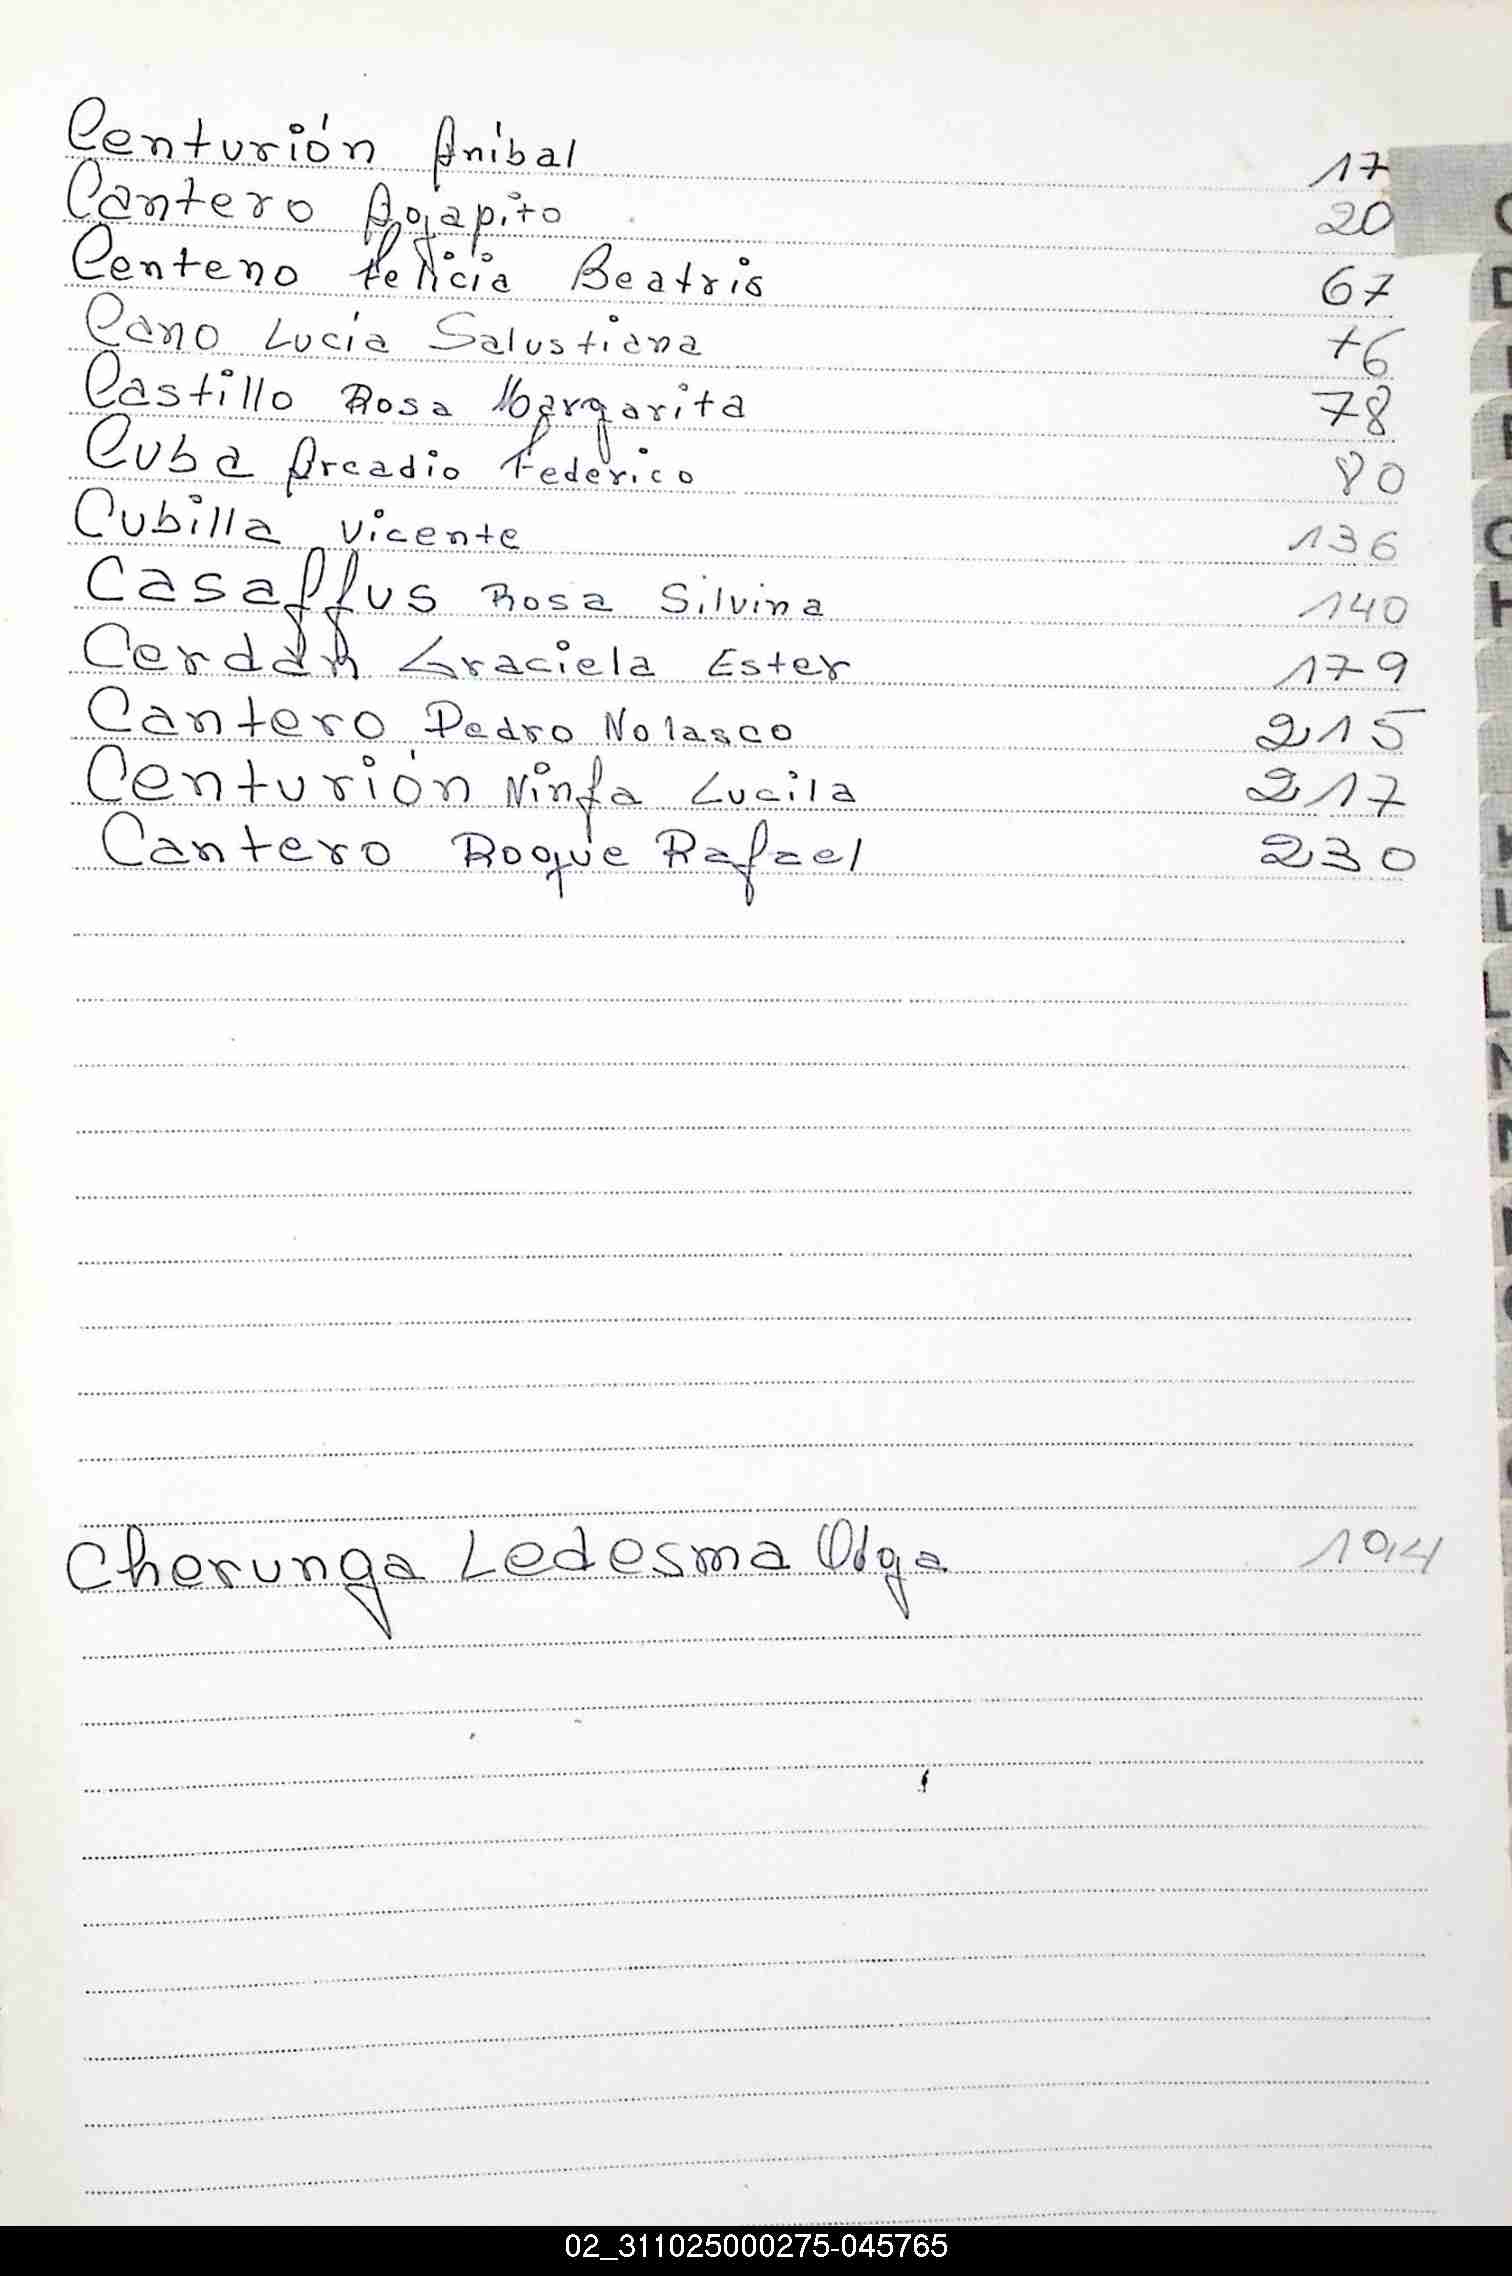 Centurión Aníbal 17
Cantero Agapito 20
Centeno Felicia Beatris 67
Cano Lucía Salustiana 76
Castillo Rosa Margarita 78
Cuba Arcadio Federico 80
Cubilla Vicente 136
Casaffus Rosa Silvina 140
Cerdán Graciela Ester 179
Cantero Pedro Nolasco 215
Centurión Ninfa Lucila 217
Cantero Roque Rafael 230
Cherunga Ledesma Olga 194
02_311025000275-045765